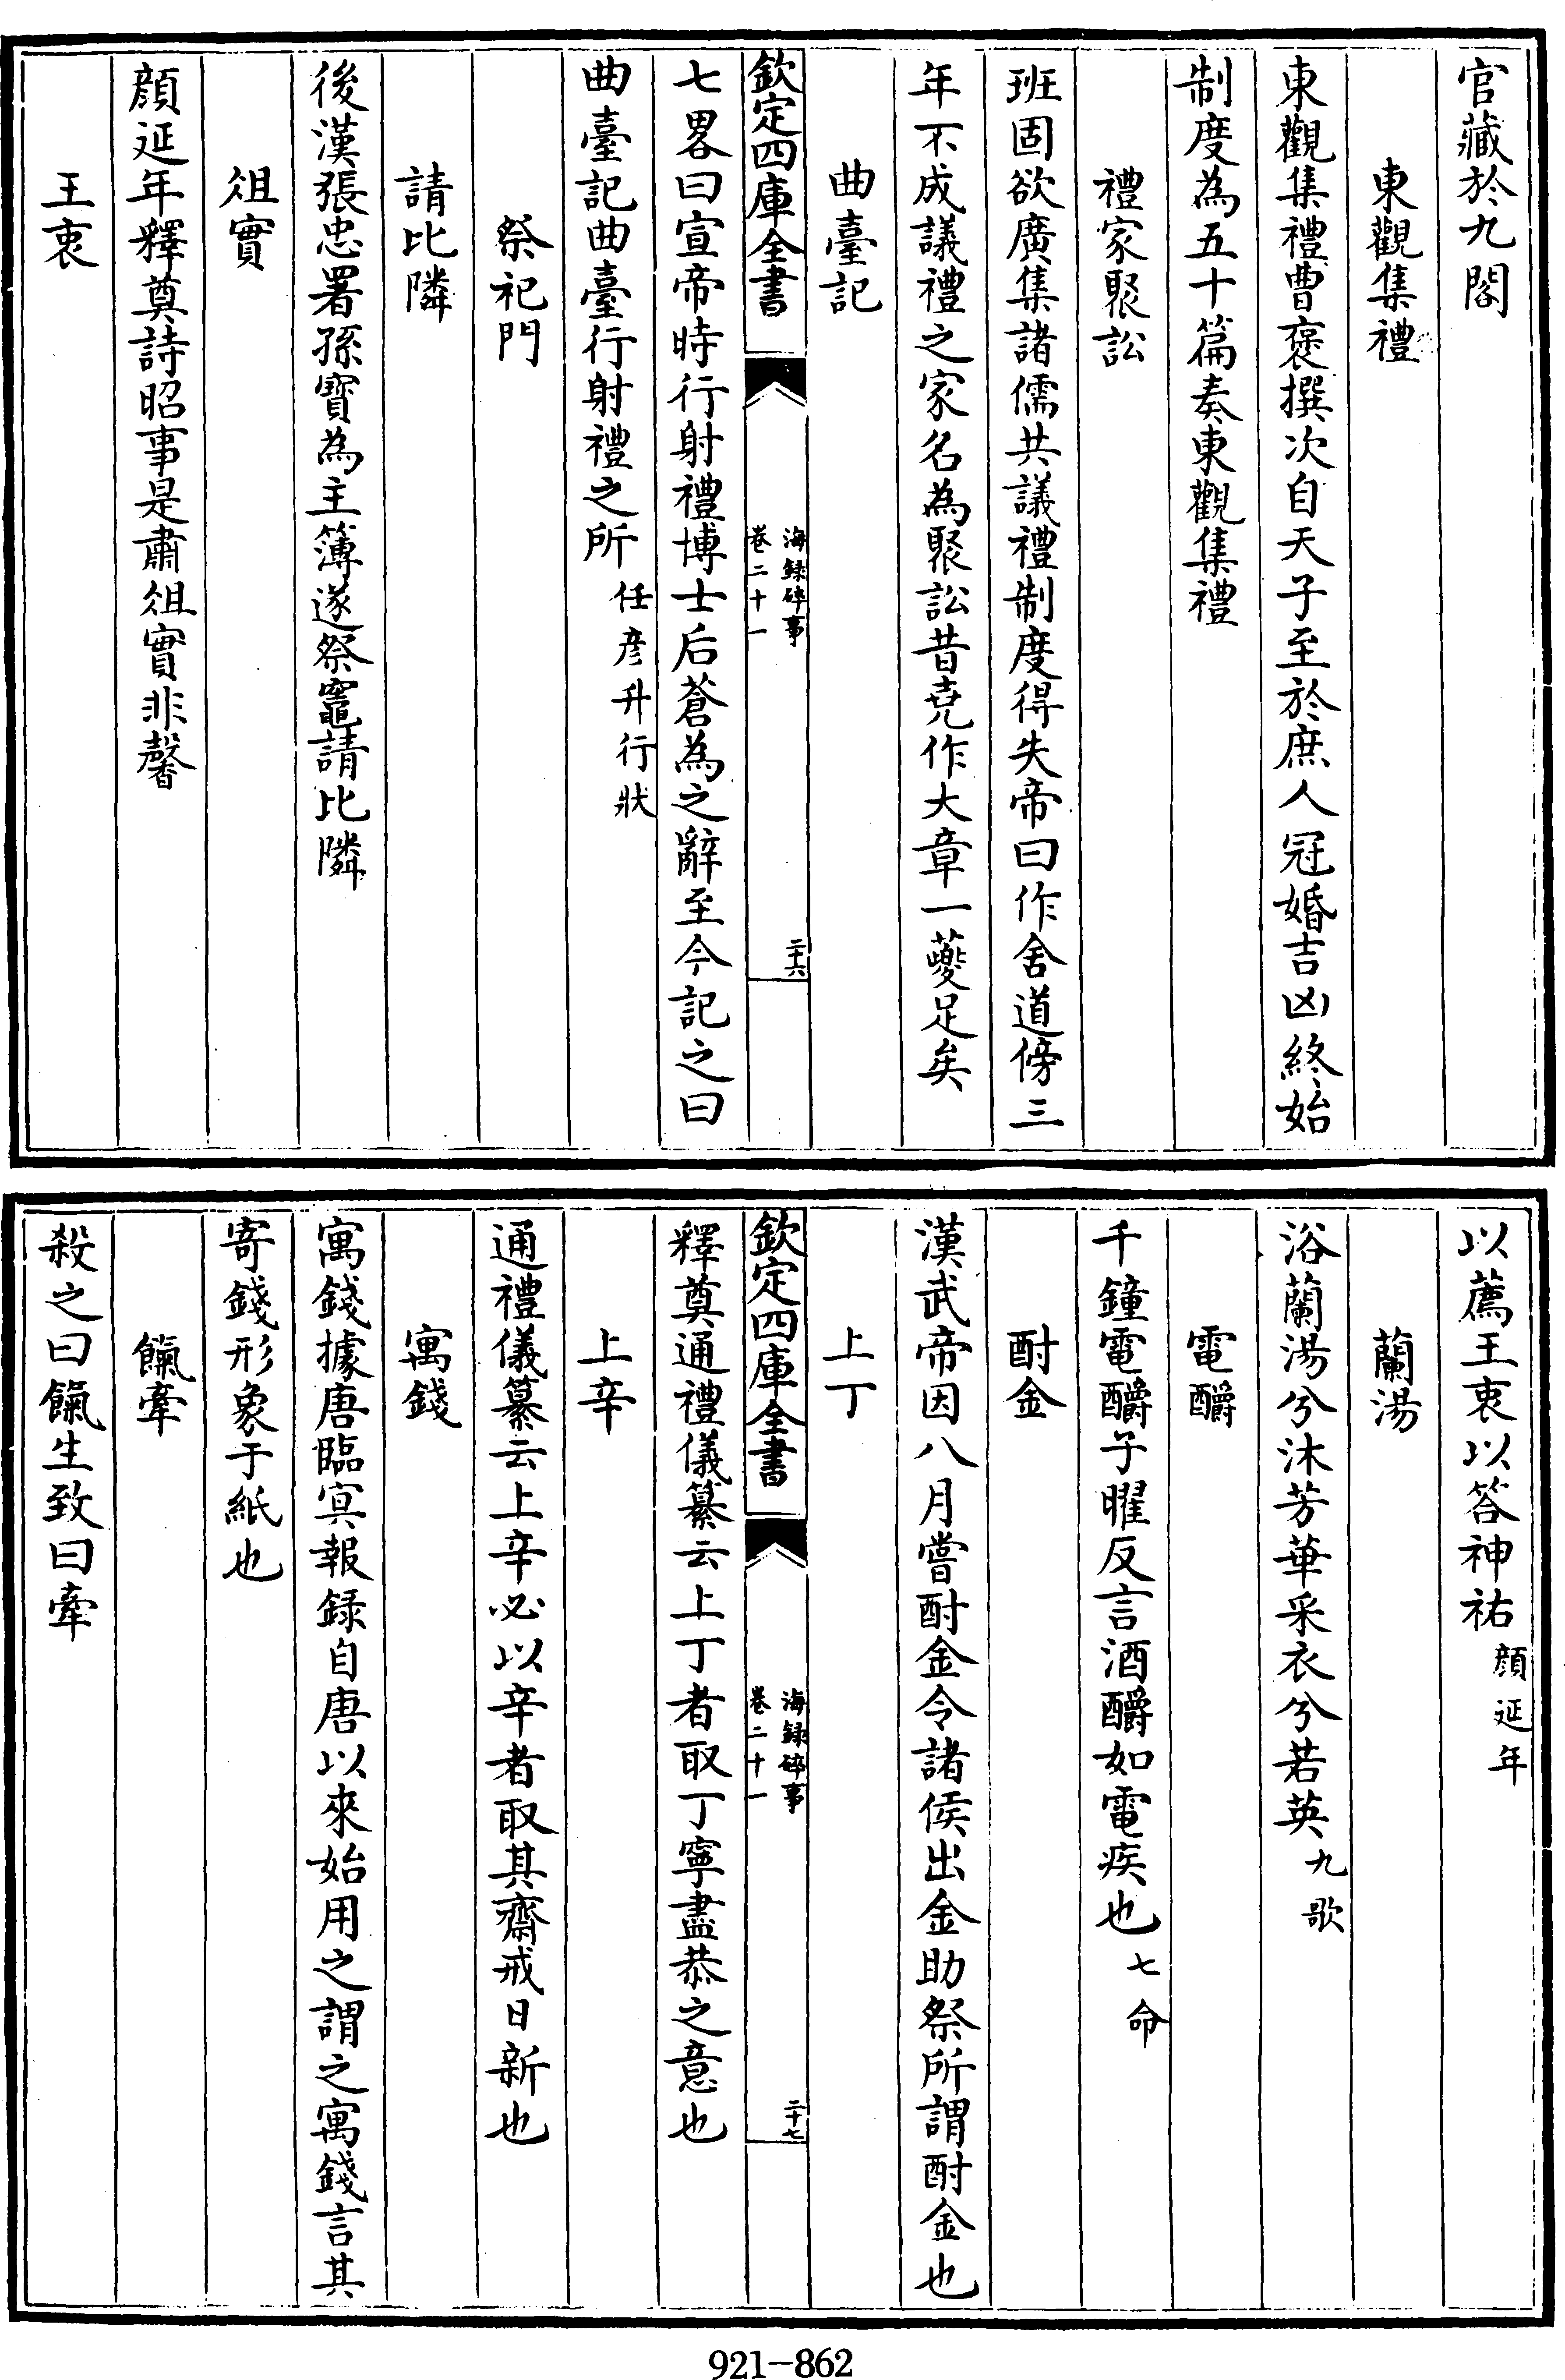 官藏於九閣
東觀集禮
東觀集禮曹褒撰次自天子至於庶人冠婚吉凶終始
制度為五十篇奏東觀集禮
禮家聚訟
班固欲廣集諸儒共議禮制度得失帝曰作舍道傍三
年不成議禮之家名為聚訟昔堯作大章一夔足矣
曲臺記
欽定四庫全書
海錄碎事
卷二十一
二十六
七畧曰宣帝時行射禮博士后蒼為之辭至今記之曰
曲臺記曲臺行射禮之所任彦升行狀
祭祀門
請比隣
後漢張忠署孫寳為主簿遂祭竈請比隣
俎實
顔延年釋奠詩昭事是肅俎實非馨
王衷
以薦王衷以答神祐顔延年
蘭湯
浴蘭湯兮沐芳華采衣兮若英九歌
電釂
千鐘電釂子曜反言酒釂如電疾也七命
酎金
漢武帝因八月嘗酎金令諸侯出金助祭所謂酎金也
上丁
欽定四庫全書
海錄碎事
卷二十一
二十七
釋奠通禮儀纂云上丁者取丁寧盡恭之意也
上辛
通禮儀纂云上辛必以辛者取其齋戒日新也
寓錢
寓錢據唐臨冥報録自唐以來始用之謂之寓錢言其
寄錢形象于紙也
餼牽
殺之曰餼生致曰牽
921-862